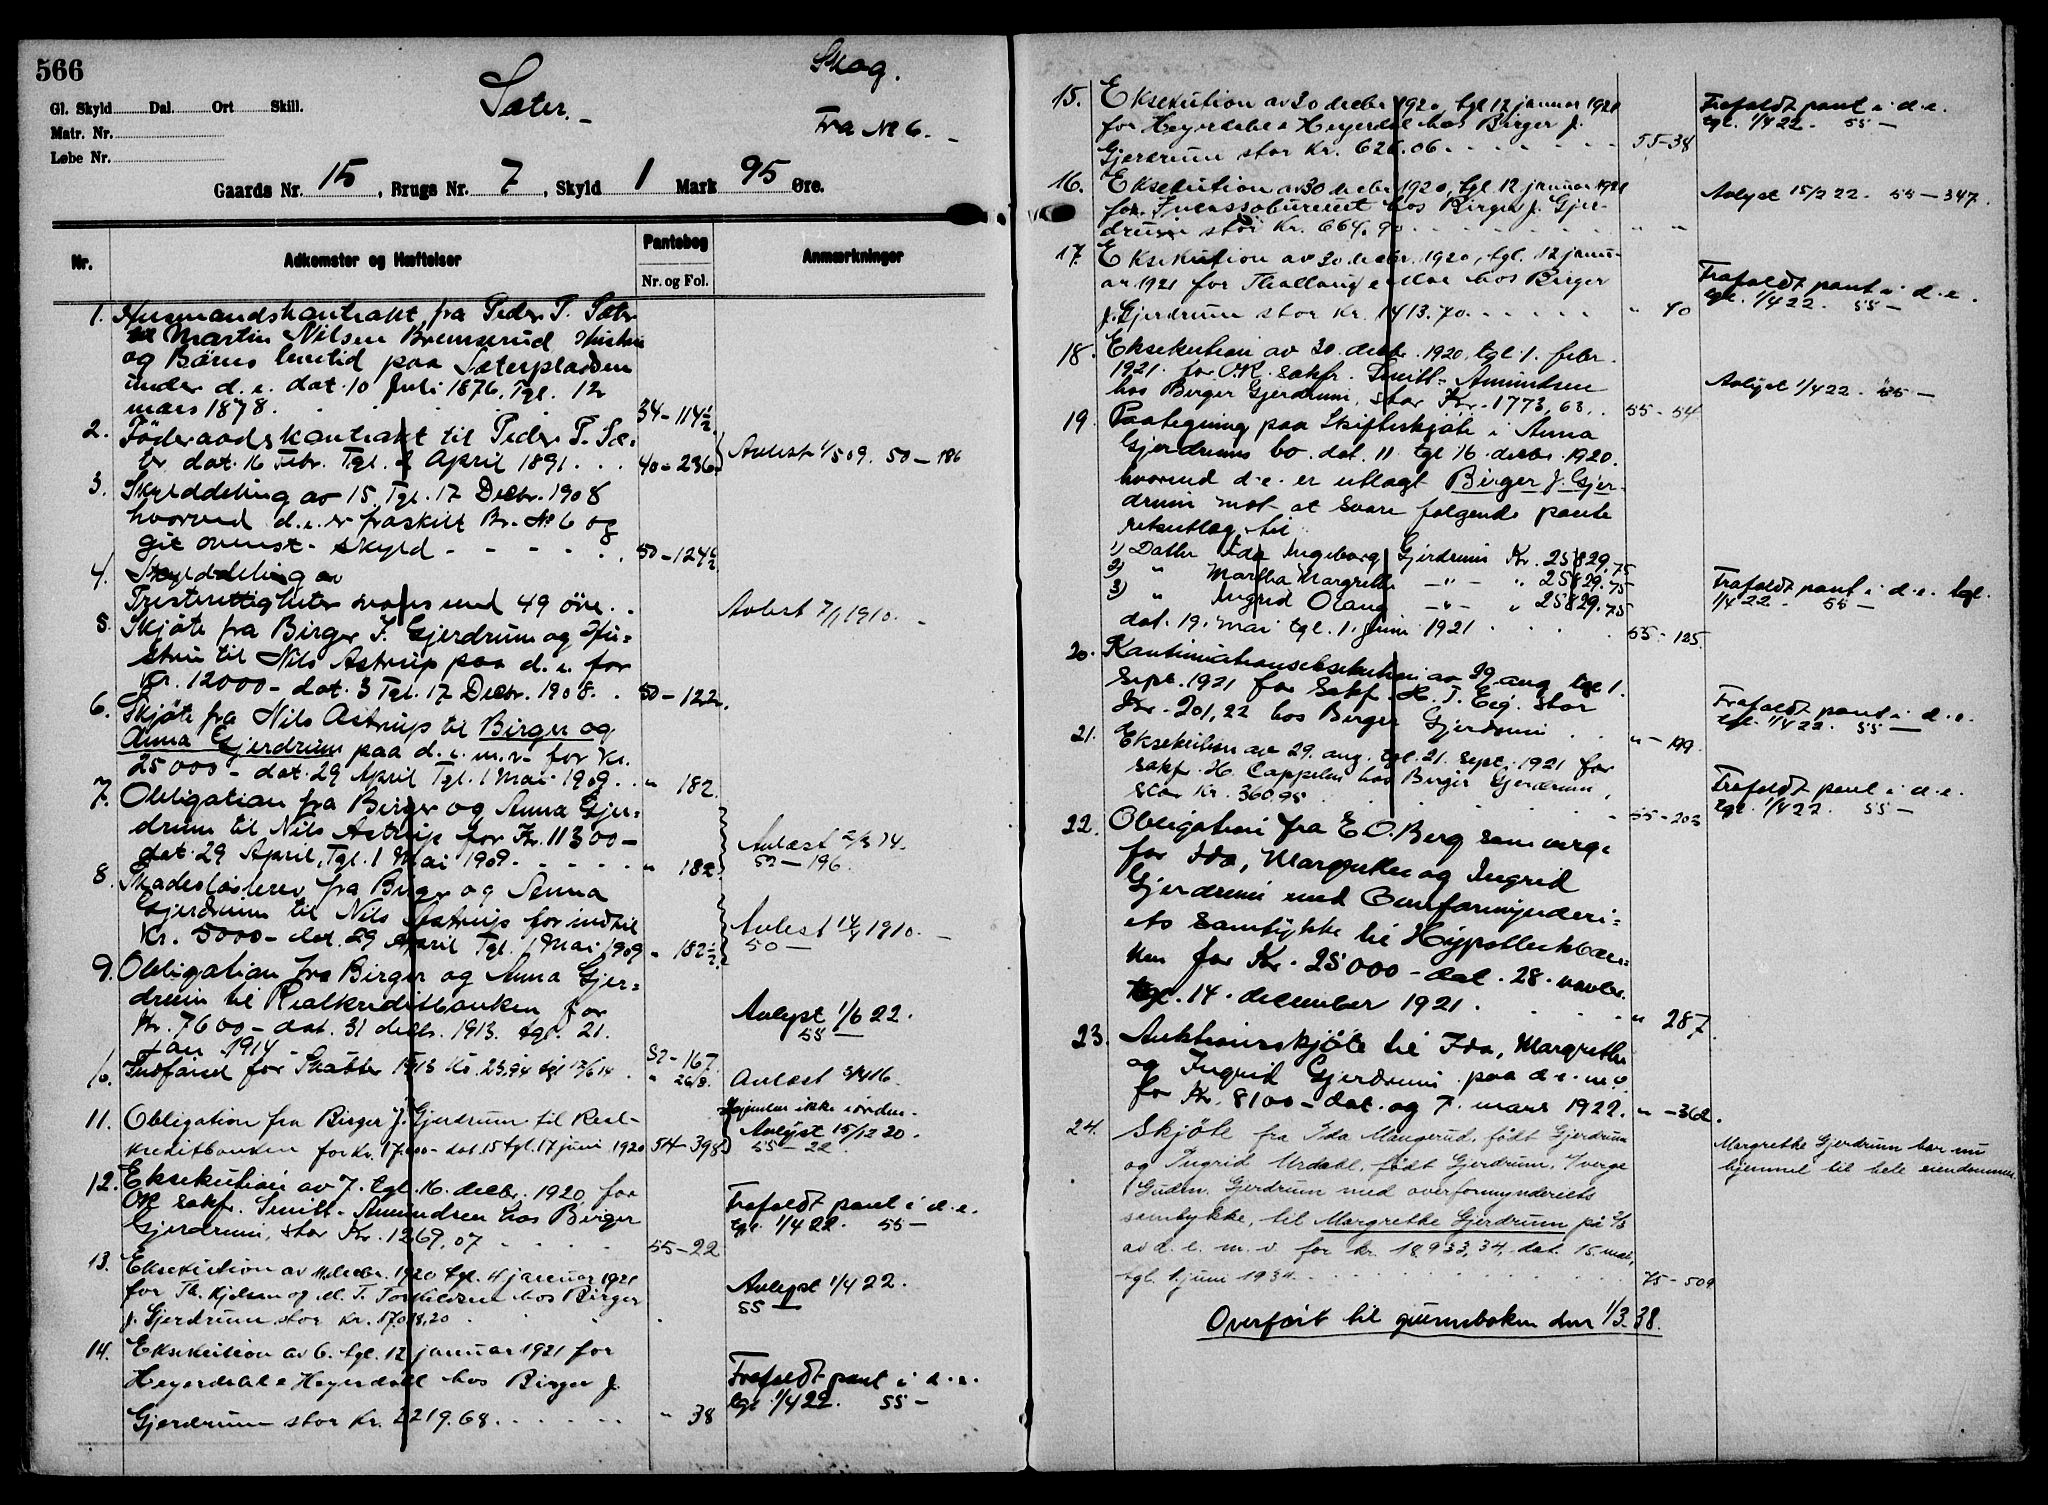 566
Skog.
Sæter.
Fra № 6.
Gl. Skyld Dal. Ort Skill.
Matr. Nr.
Løbe Nr.
Gaards Nr. 15, Brugs Nr. 7, Skyld 1 Mark 95 Øre.
Nr. Adkomster og Hæftelser Pantebog Anmærkninger
Nr. og Fol.
1. Husmandskontrakt fra Peder P. Sæter
til Martin Nilsen Bremserud Hustru
og Børns levetid paa Sæterpladsen
under d. e. dat. 10 Juli 1876, Tgl. 12
mars 1878. 34-114½
2. Føderaadskontrakt til Peder P. Sæ-
ter dat. 16 Febr. Tgl. 2 April 1891. 40-236 Avlest 1/5 09. 50-186
3. Skylddeling av 15, Tgl. 17 Decbr. 1908
hvorved d. e. er fraskilt Br. № 6 og
git ovenst. skyld 50-124½
4. Skylddeling av
49 øre. Avlest 7/1 1910.
5. Skjøte fra Birger J. Gjerdrum og Hu-
stru til Nils Astrup paa d. e. for
Kr. 12000- dat. 3 Tgl. 17 Decbr. 1908. 50-122.
6. Skjøte fra Nils Astrup til Birger og
Anna Gjerdrum paa d. e. m. v. for Kr.
25000- dat. 29 April Tgl. 1 Mai 1909. " 182.
7. Obligation fra Birger og Anna Gjer-
drum til Nils Astrup for Kr. 11300-
dat. 29 April, Tgl. 1 Mai 1909. " 182 Avlæst 14. 52-196.
8. Skadesløsbrev fra Birger og Anna
Gjerdrum til Nils Astrup for indtil
Kr. 5000- dat. 29 April Tgl. 1 Mai 1909 " 182½ Avlest 1910. 50-
9. Obligation fra Birger og Anna Gjer-
drum til Realkreditbanken for
Kr. 7600- dat. 31 decbr. 1913. tgl. 21.
Jan 1914 52-167. Avlyst 1/6 22. 55
10. Indførsel for Skatter 1913 Kr. 23,94 tgl 14. " 268. Avlæst 16.
11. Obligation fra Birger J. Gjerdrum til Real-
kreditbanken for Kr. 17.000- dat. 15 tgl. 17 juni 1920 54-398 Hjemlen ikke i orden. Avlyst 15/12 20. 55-22.
12. Eksekution av 7. tgl. 16. decbr. 1920 for
O.R. sakf. Smitt-Amundsen hos Birger
Gjerdrum, stor Kr. 1269,07 55-22 Frafaldt pant i d. e. tgl. 1/4 22. 55-
13. Eksekution av 11. decbr. 1920 tgl. 4 januar 1921
for Th. Kjelsen og M. T. Torkildsen hos Birger
J. Gjerdrum stor Kr. 17.018,20 Avlyst 1/4 22. 55
14. Eksekution av 6. tgl. 12 januar 1921 for
Heyerdahl & Heyerdahl hos Birger J.
Gjerdrum stor Kr. 2219.68 " 38 Frafaldt pant i d. e. tgl. 1/4 22. 55-
15. Eksekution av 30 decbr 1920, tgl 12 januar 1921
for Heyerdahl & Heyerdal hos Birger J.
Gjerdrum stor Kr. 626.06 55-38 Frafaldt pant i d. e. tgl. 1/4 22. 55-
16. Eksekution av 30 decbr 1920, tgl 12 januar 1921
for Incassobureuet hos Birger J. Gjer-
drum stor Kr. 664.90 " " Avlyst 15/2 22. 55-347.
17. Eksekution av 20 decbr. 1920, tgl. 12 janu-
ar 1921 for hos Birger
J. Gjerdrum stor Kr. 1413.70. " 40 Frafaldt pant i d. e. tgl. 1/4 22. 55-
18. Eksekution av 30. decbr. 1920, tgl. 1. febr.
1921. for O.R. sakfr. Smitt-Amundsen
hos Birger Gjerdrum, stor Kr. 1773,63. 55-54 Avlyst 1/4 22. 55-
19. Paategning paa Skifteskjøte i Anna
Gjerdrums bo. dat. 11 tgl 16. decbr. 1920.
hvorved d. e. er utlagt Birger J. Gjer-
drum mot at svare følgende pante
retsutlæg til
1) Datter Ida Ingeborg Gjerdrum Kr. 25829.75
2) " Martha Margrethe -"- " 25829.75
3) " Ingrid Olaug -"- " 25829.75
dat. 19. mai tgl. 1. juni 1921 55-125. Frafaldt pant i d. e. tgl. 1/4 22. 55-
20. Kontinuationseksekution av 29 aug tgl 1.
sept. 1921 for sakf. H. T. Eeg. stor
Kr. 201,22 hos Birger Gjerdrum "-199. Frafaldt pant i d. e. tgl. 1/4 22. 55-
21. Eksekution av 29. aug. tgl. 21. sept. 1921 for
sakf. H. Cappelen hos Birger Gjerdrum,
stor Kr. 360.95 55-203 Frafaldt pant i d. e. tgl. 1/4 22. 55-
22. Obligation fra E O. Berg som verge
for Ida, Margrethe og Ingrid
Gjerdrum med Overformynderi-
ets samtykke til Hypothekban-
ken for Kr. 25000- dat. 28. novbr.
tgl. 14. december 1921. " 287.
23. Auktionsskjøte til Ida, Margrethe
og Ingrid Gjerdrum paa d. e. m. v.
for Kr. 8100- dat. og 7. mars 1922. "-362.
24. Skjøte fra Ida Mangerud, født Gjerdrum
og Ingrid Urdahl, født Gjerdrum, v/verge
Gudm. Gjerdrum med overformynderiets
samtykke, til Margrethe Gjerdrum på 2/3
av d. e. m. v. for kr. 18933,34, dat. 15 mai,
tgl. 1 juni 1934 75-509 Margrethe Gjerdrum har nu hjemmel til hele eiendommen.
Overført til grunnboken den 1/3.38.